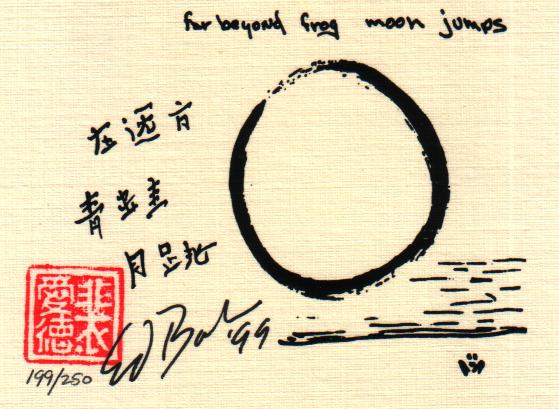 far beyond frog moon jumps
在远方
青蛙
月跳
裴
愛德
'99
199/250